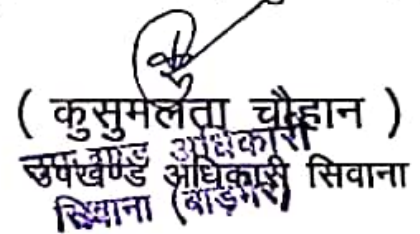 ( कुसुमलता चौहान )
उपखण्ड अधिकारी
उपखण्ड अधिकारी सिवाना
सिवाना (बाड़मेर)